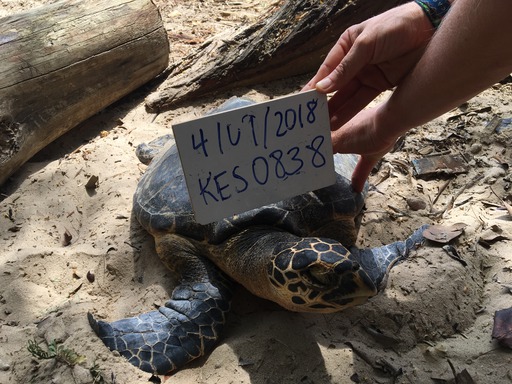 4/07/2018
KES0838